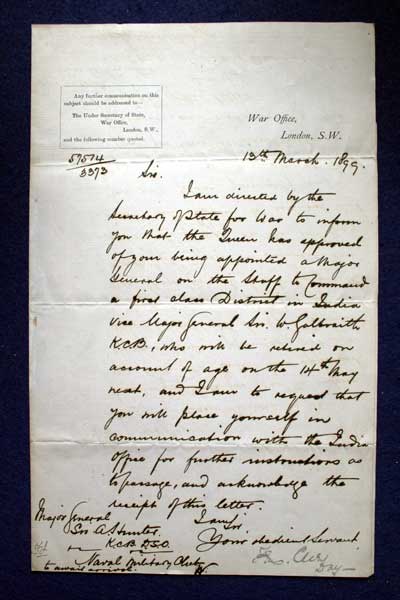 Any further communication on this
subject should be addressed to—
The Under Secretary of State,
War Office,
London, S.W.,
and the following number quoted.
War Office,
London, S.W.
57514
3373
13th March. 1899.
Sir.
I am directed by the
Secretary of State for War to inform
you that the Queen has approved
of your being appointed a Major
General on the Staff to Command
a first class District in India
vice Major General Sir W. Galbraith
K.C.B., who will be retired on
account of age on the 14th May
next, and I am to request that
you will place yourself in
communication with the India
Office for further instructions as
to passage, and acknowledge the
receipt of this letter.
I am
Sir,
Your obedient Servant
Major General
Sir A. Hunter.
K.C.B. D.S.O.
Naval Military Club
W.
to await arrival.